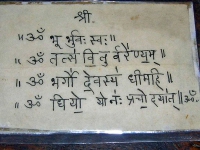 श्री.
॥ ॐ भू र्भुवः स्वः ॥
॥ ॐ तत्स॑ वि॒तु॒ र्वरे॑ण्य॒म् ॥
॥ ॐ भर्गो॑ दे॒वस्य॑ धीमहि ॥
॥ ॐ धियो॒ यो नः॑ प्रचो॒दया॑त् ॥ ॐ